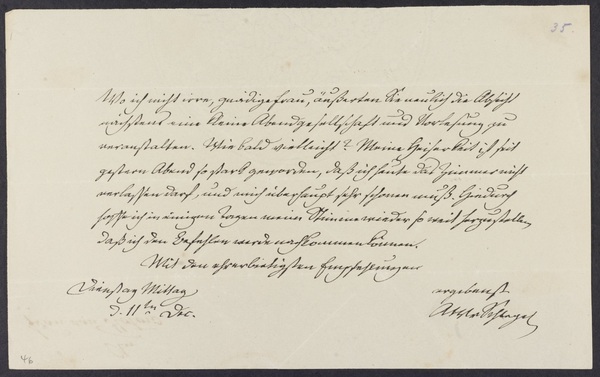 35.
Wo ich nicht irre, gnädige Frau, äußerten Sie neulich die Absicht
nächstens eine kleine Abendgesellschaft und Vorlesung zu
veranstalten. Wie bald vielleicht? Meine Heiserkeit ist seit
gestern Abend so stark geworden, daß ich heute das Zimmer nicht
verlassen darf, und mich überhaupt sehr schonen muß. Hiedurch
hoffe ich in einigen Tagen meine Stimme wieder so weit herzustellen,
daß ich den Befehlen werde nachkommen können.
Mit den ehrerbietigsten Empfehlungen
Dienstag Mittag
d. 11ten Dec.
ergebenst
AWvSchlegel
46